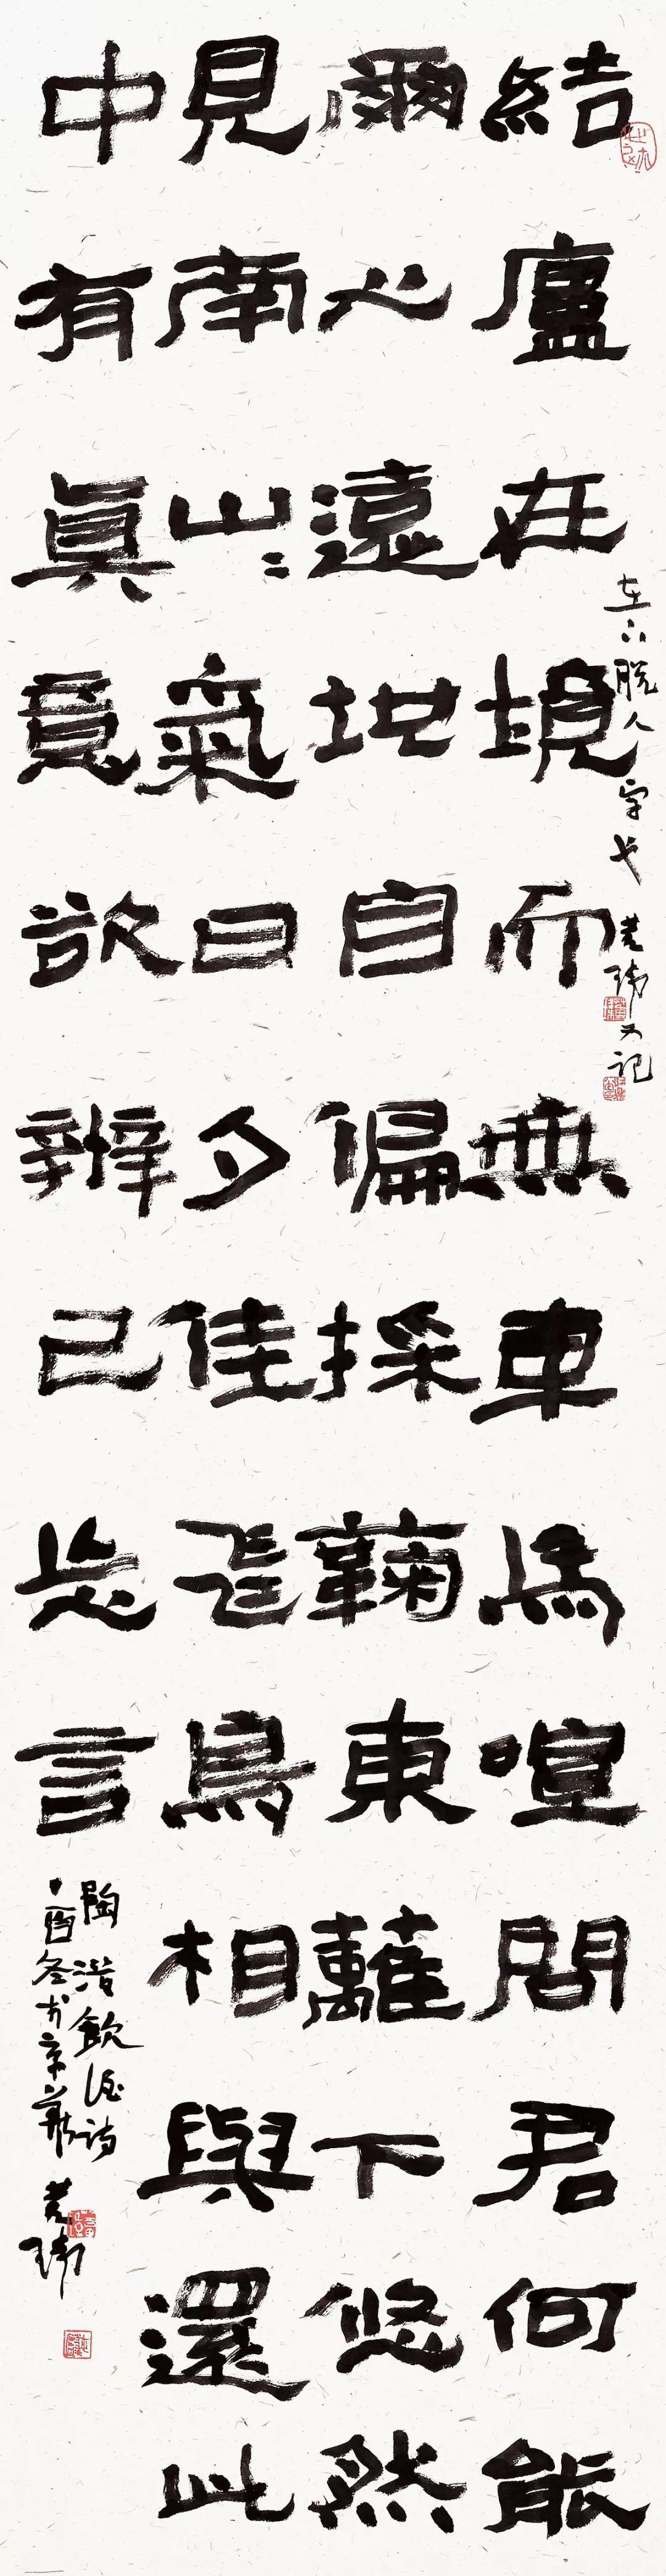 結廬在境而無車馬喧問君何能
爾心遠地自偏採蘜東蘺下悠然
見南山〻氣日夕佳飛鳥相與還此
中有眞意欲辨已忘言
陶潛飲酒詩
丁酉冬於京華
在下脱人字 又記